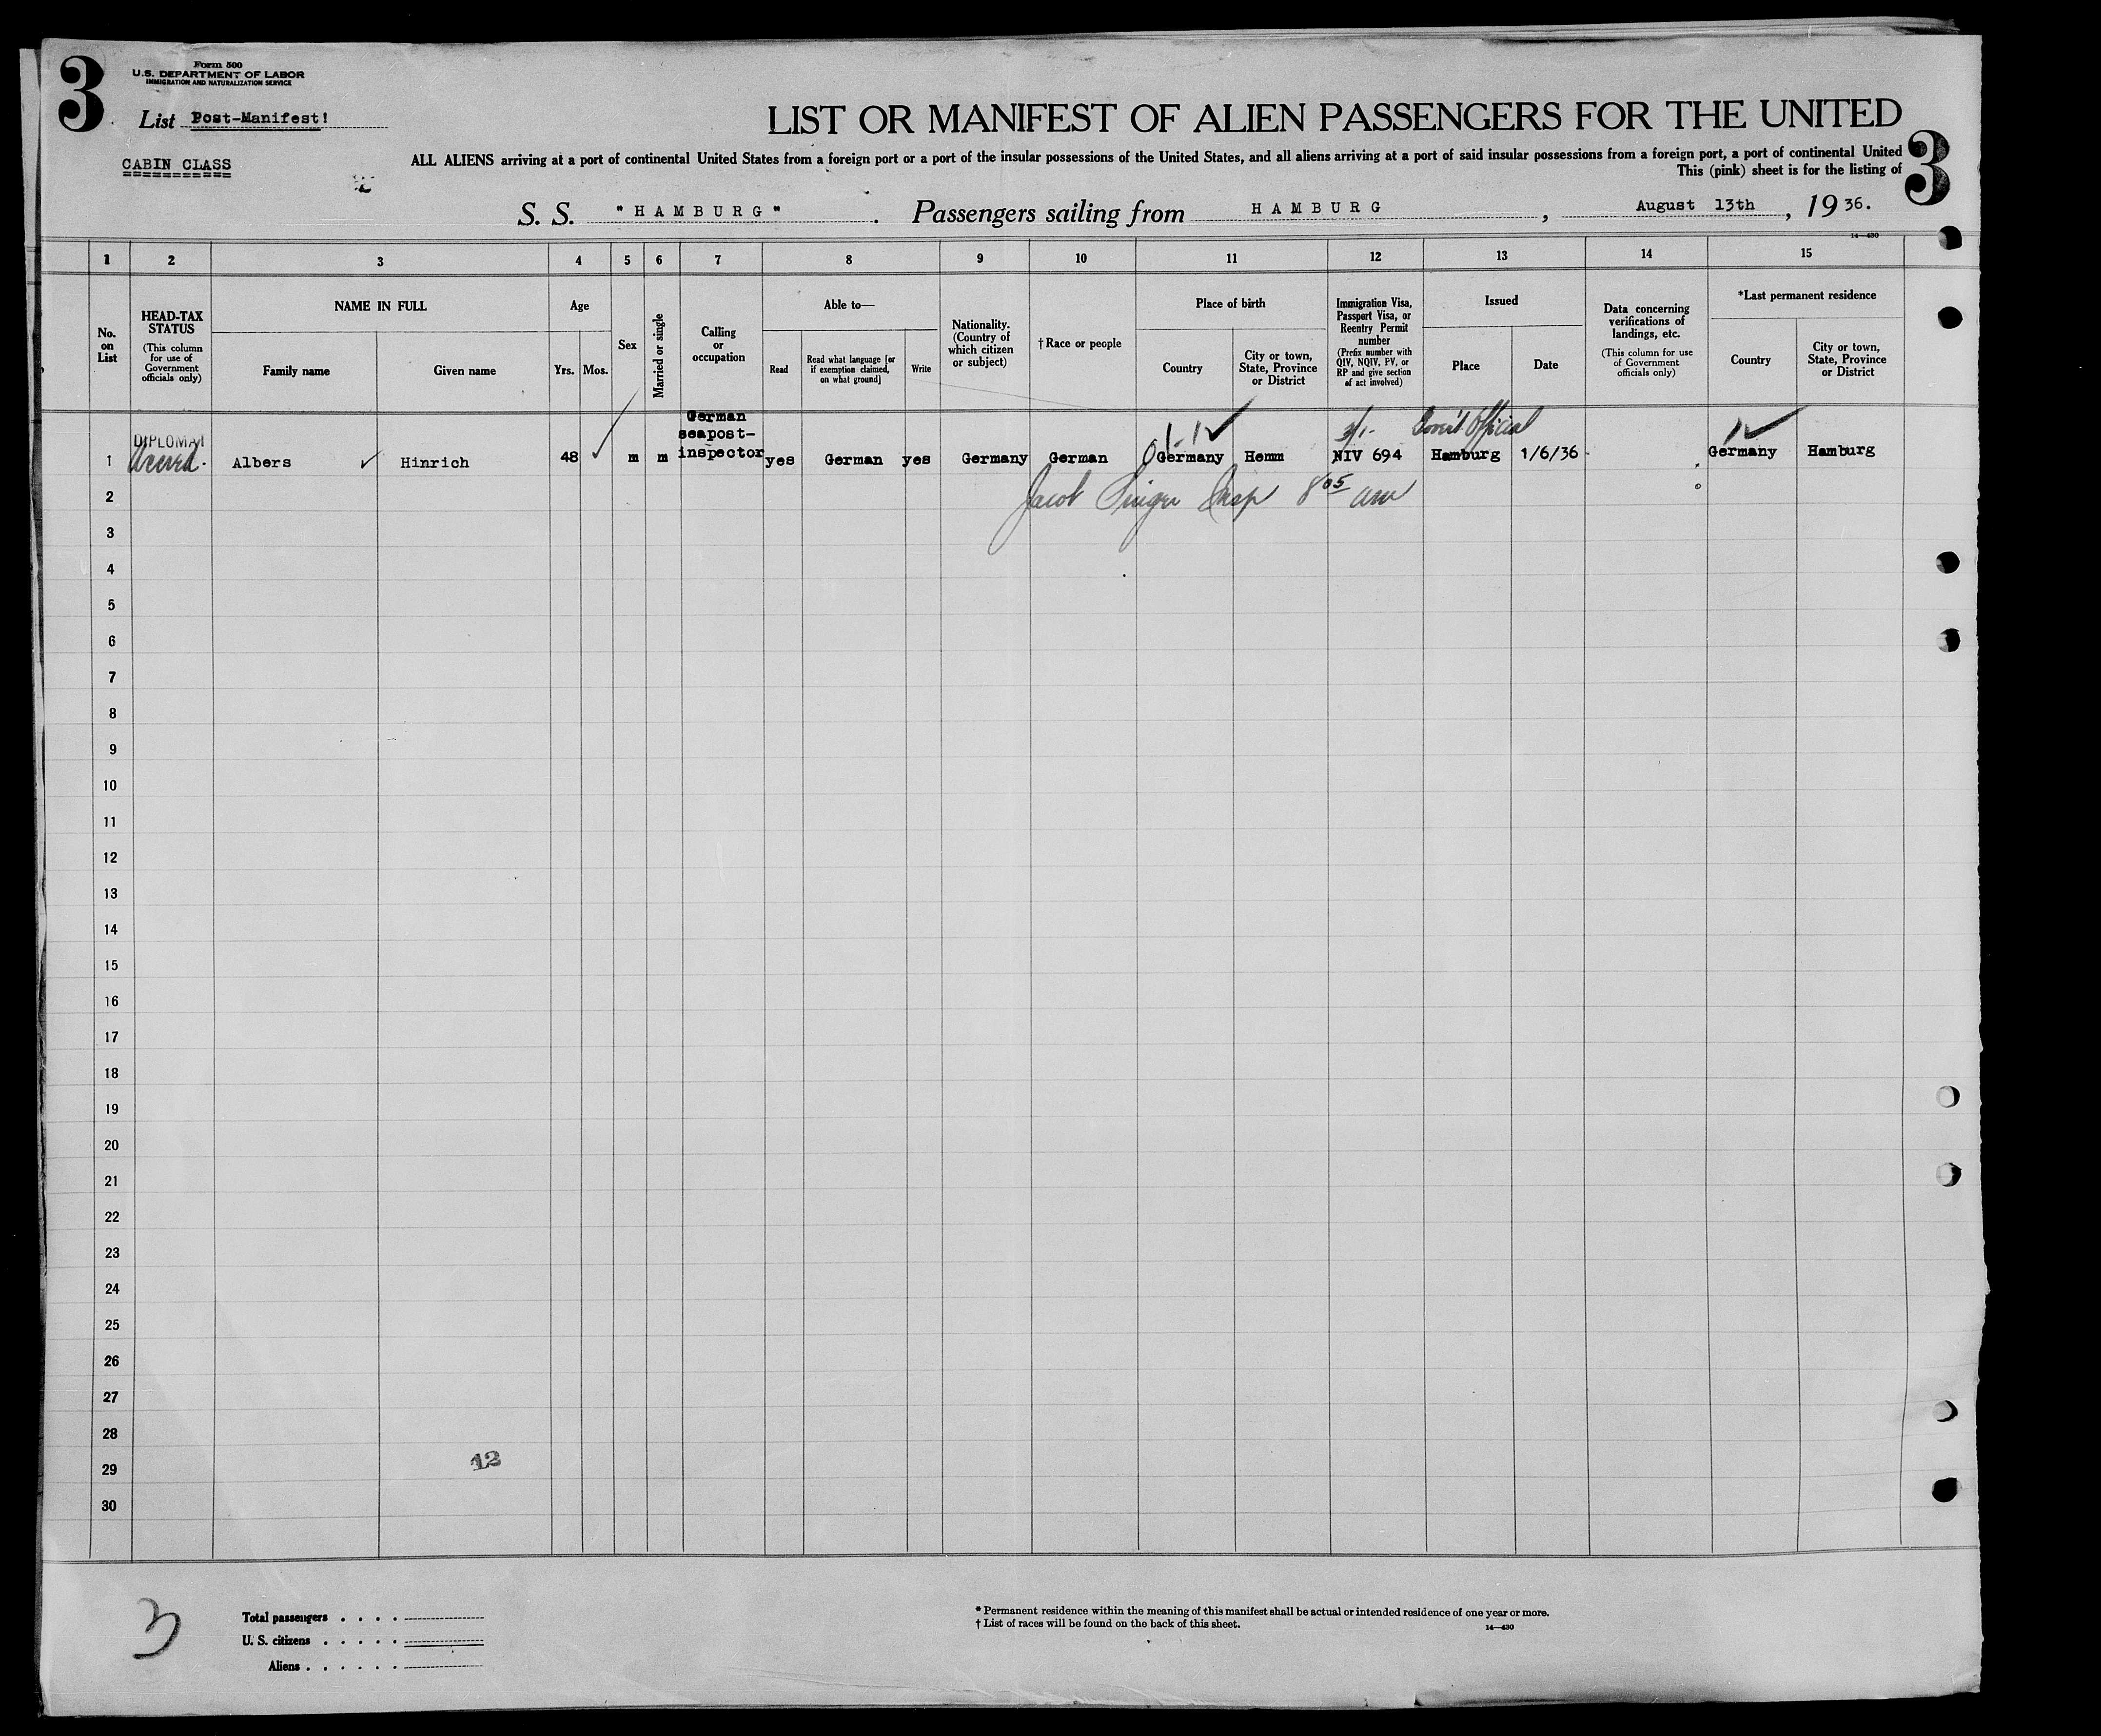 3
Form 500
U.S. DEPARTMENT OF LABOR
IMMIGRATION AND NATURALIZATION SERVICE
List Post-Manifest!
CABIN CLASS
LIST OR MANIFEST OF ALIEN PASSENGERS FOR THE UNITED
ALL ALIENS arriving at a port of continental United States from a foreign port or a port of the insular possessions of the United States, and all aliens arriving at a port of said insular possessions from a foreign port, a port of continental United
This (pink) sheet is for the listing of
3
S. S. "HAMBURG". Passengers sailing from HAMBURG, August 13th, 1936.
14—430
1 2 3 4 5 6 7 8 9 10 11 12 13 14 15
No. on List
HEAD-TAX STATUS
(This column for use of Government officials only)
NAME IN FULL
Family name
Given name
Age
Yrs.
Mos.
Sex
Married or single
Calling or occupation
Able to—
Read
Read what language [or if exemption claimed, on what ground]
Write
Nationality. (Country of which citizen or subject)
† Race or people
Place of birth
Country
City or town, State, Province or District
Immigration Visa, Passport Visa, or Reentry Permit number
(Prefix number with QIV, NQIV, PV, or RP and give section of act involved)
Issued
Place
Date
Data concerning verifications of landings, etc.
(This column for use of Government officials only)
*Last permanent residence
Country
City or town, State, Province or District
DIPLOMAT
3/1- Gov't Official
1 Albers Hinrich 48 m m German seapost-inspector yes German yes Germany German Germany Hemm NIV 694 Hamburg 1/6/36 Germany Hamburg
2 Jacob Singer Insp 8 05 am
3
4
5
6
7
8
9
10
11
12
13
14
15
16
17
18
19
20
21
22
23
24
25
26
27
28
29
12
30
3
Total passengers
U. S. citizens
Aliens
* Permanent residence within the meaning of this manifest shall be actual or intended residence of one year or more.
† List of races will be found on the back of this sheet.
14—430